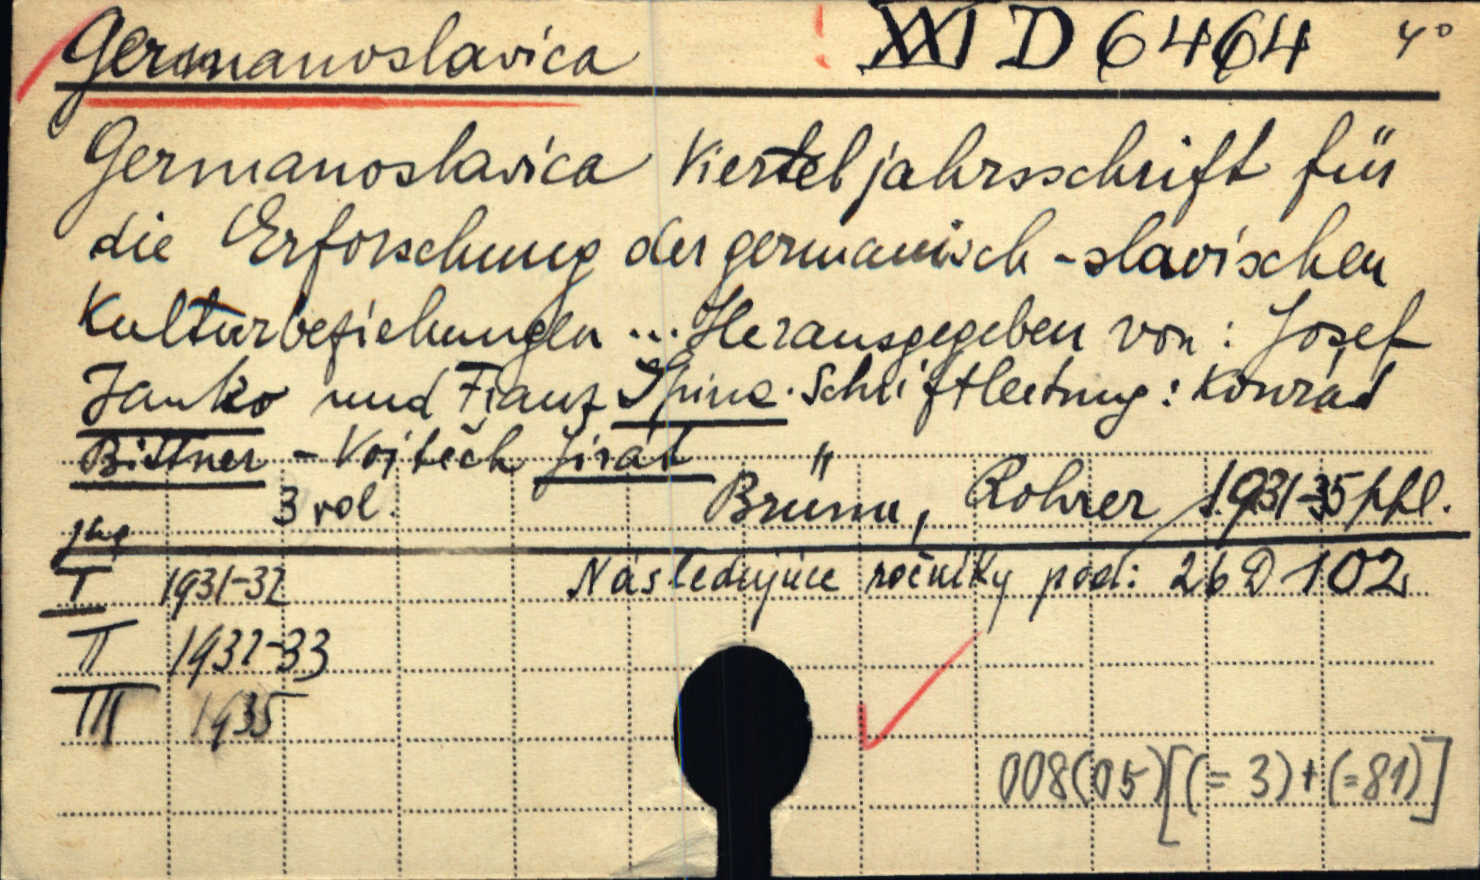 Germanoslavica XXI D 6464 4°
Germanoslavica Vierteljahrsschrift für
die Erforschung der germanisch-slavischen
Kulturbeziehungen ... Herausgegeben von: Josef
Janko und Franz Spina. Schriftleitung: Konrad
Bittner - Vojtěch Jirát
3 vol. Brünn, Rohrer 1931-35 ppl.
jhg
I 1931-32 Následujúce ročníky pod: 26 D 102
II 1932-33
III 1935
008(05)[(=3)+(=81)]